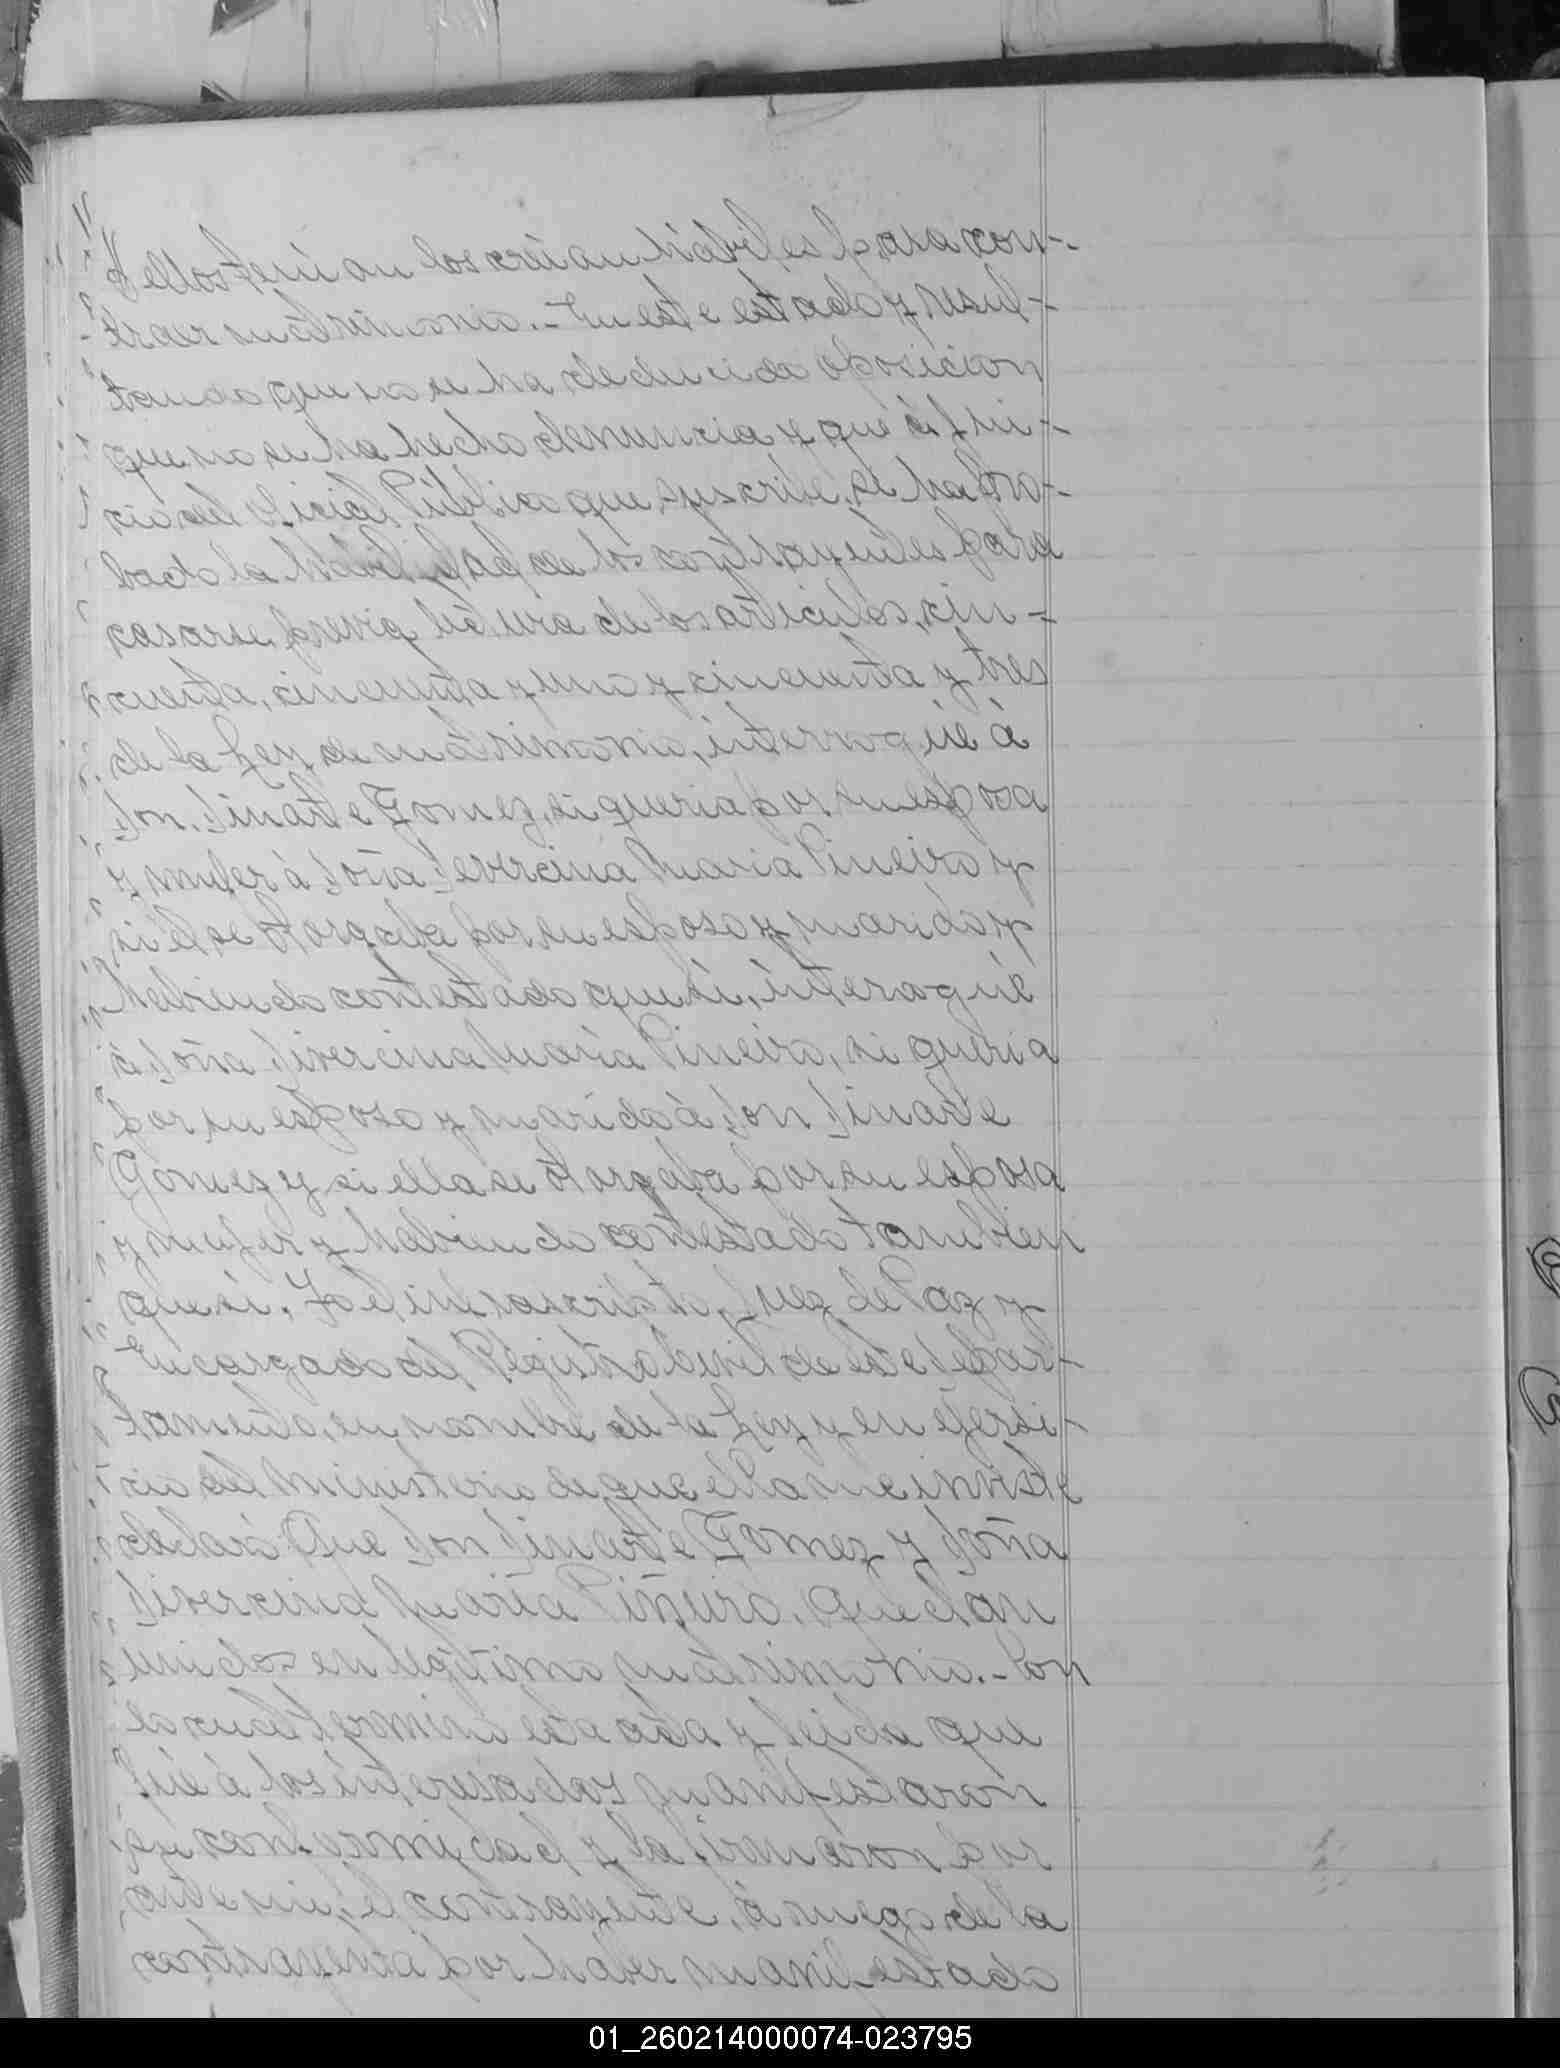 y ellos tenian los creian hábiles para con-
traer matrimonio.- En este estado y resul-
tando que no se ha deducido oposicion
que no se ha hecho denuncia y que á jui-
cio del Oficial Público que suscribe, se ha pro-
bado la habilidad de los contrayentes para
casarse, previa lectura de los articulos, cin-
cuenta, cincuenta y uno y cincuenta y tres
de la Ley de matrimonio, interrogué á
Don Duarte Gomez, si queria por su esposa
y mujer á Doña Divercina Maria Pineiro y
si él se otorgaba por su esposo y marido y
habiendo contestado que si, interogué
á Doña Divercina Maria Pineiro, si queria
por su esposo y marido á Don Duarte
Gomez y si ella se otorgaba por su esposa
y mujer y habiendo contestado tambien
que si. Yo el infrascripto, Juez de Paz y
Encargado del Registro Civil de este Depar-
tamento, en nombre de la Ley y en ejersi-
cio del Ministerio de que ella me inviste
declaro: Que Don Duarte Gomez y Doña
Divercina Maria Piñeiro, quedan
unidos en legitimo matrimonio.- Con
lo cual terminó esta acta y leida que
fué á los interesados manifestaron
su conformidad y la firmaron por
ante mi, el contrayente, á ruego de la
contrayente por haber manifestado
01_260214000074-023795